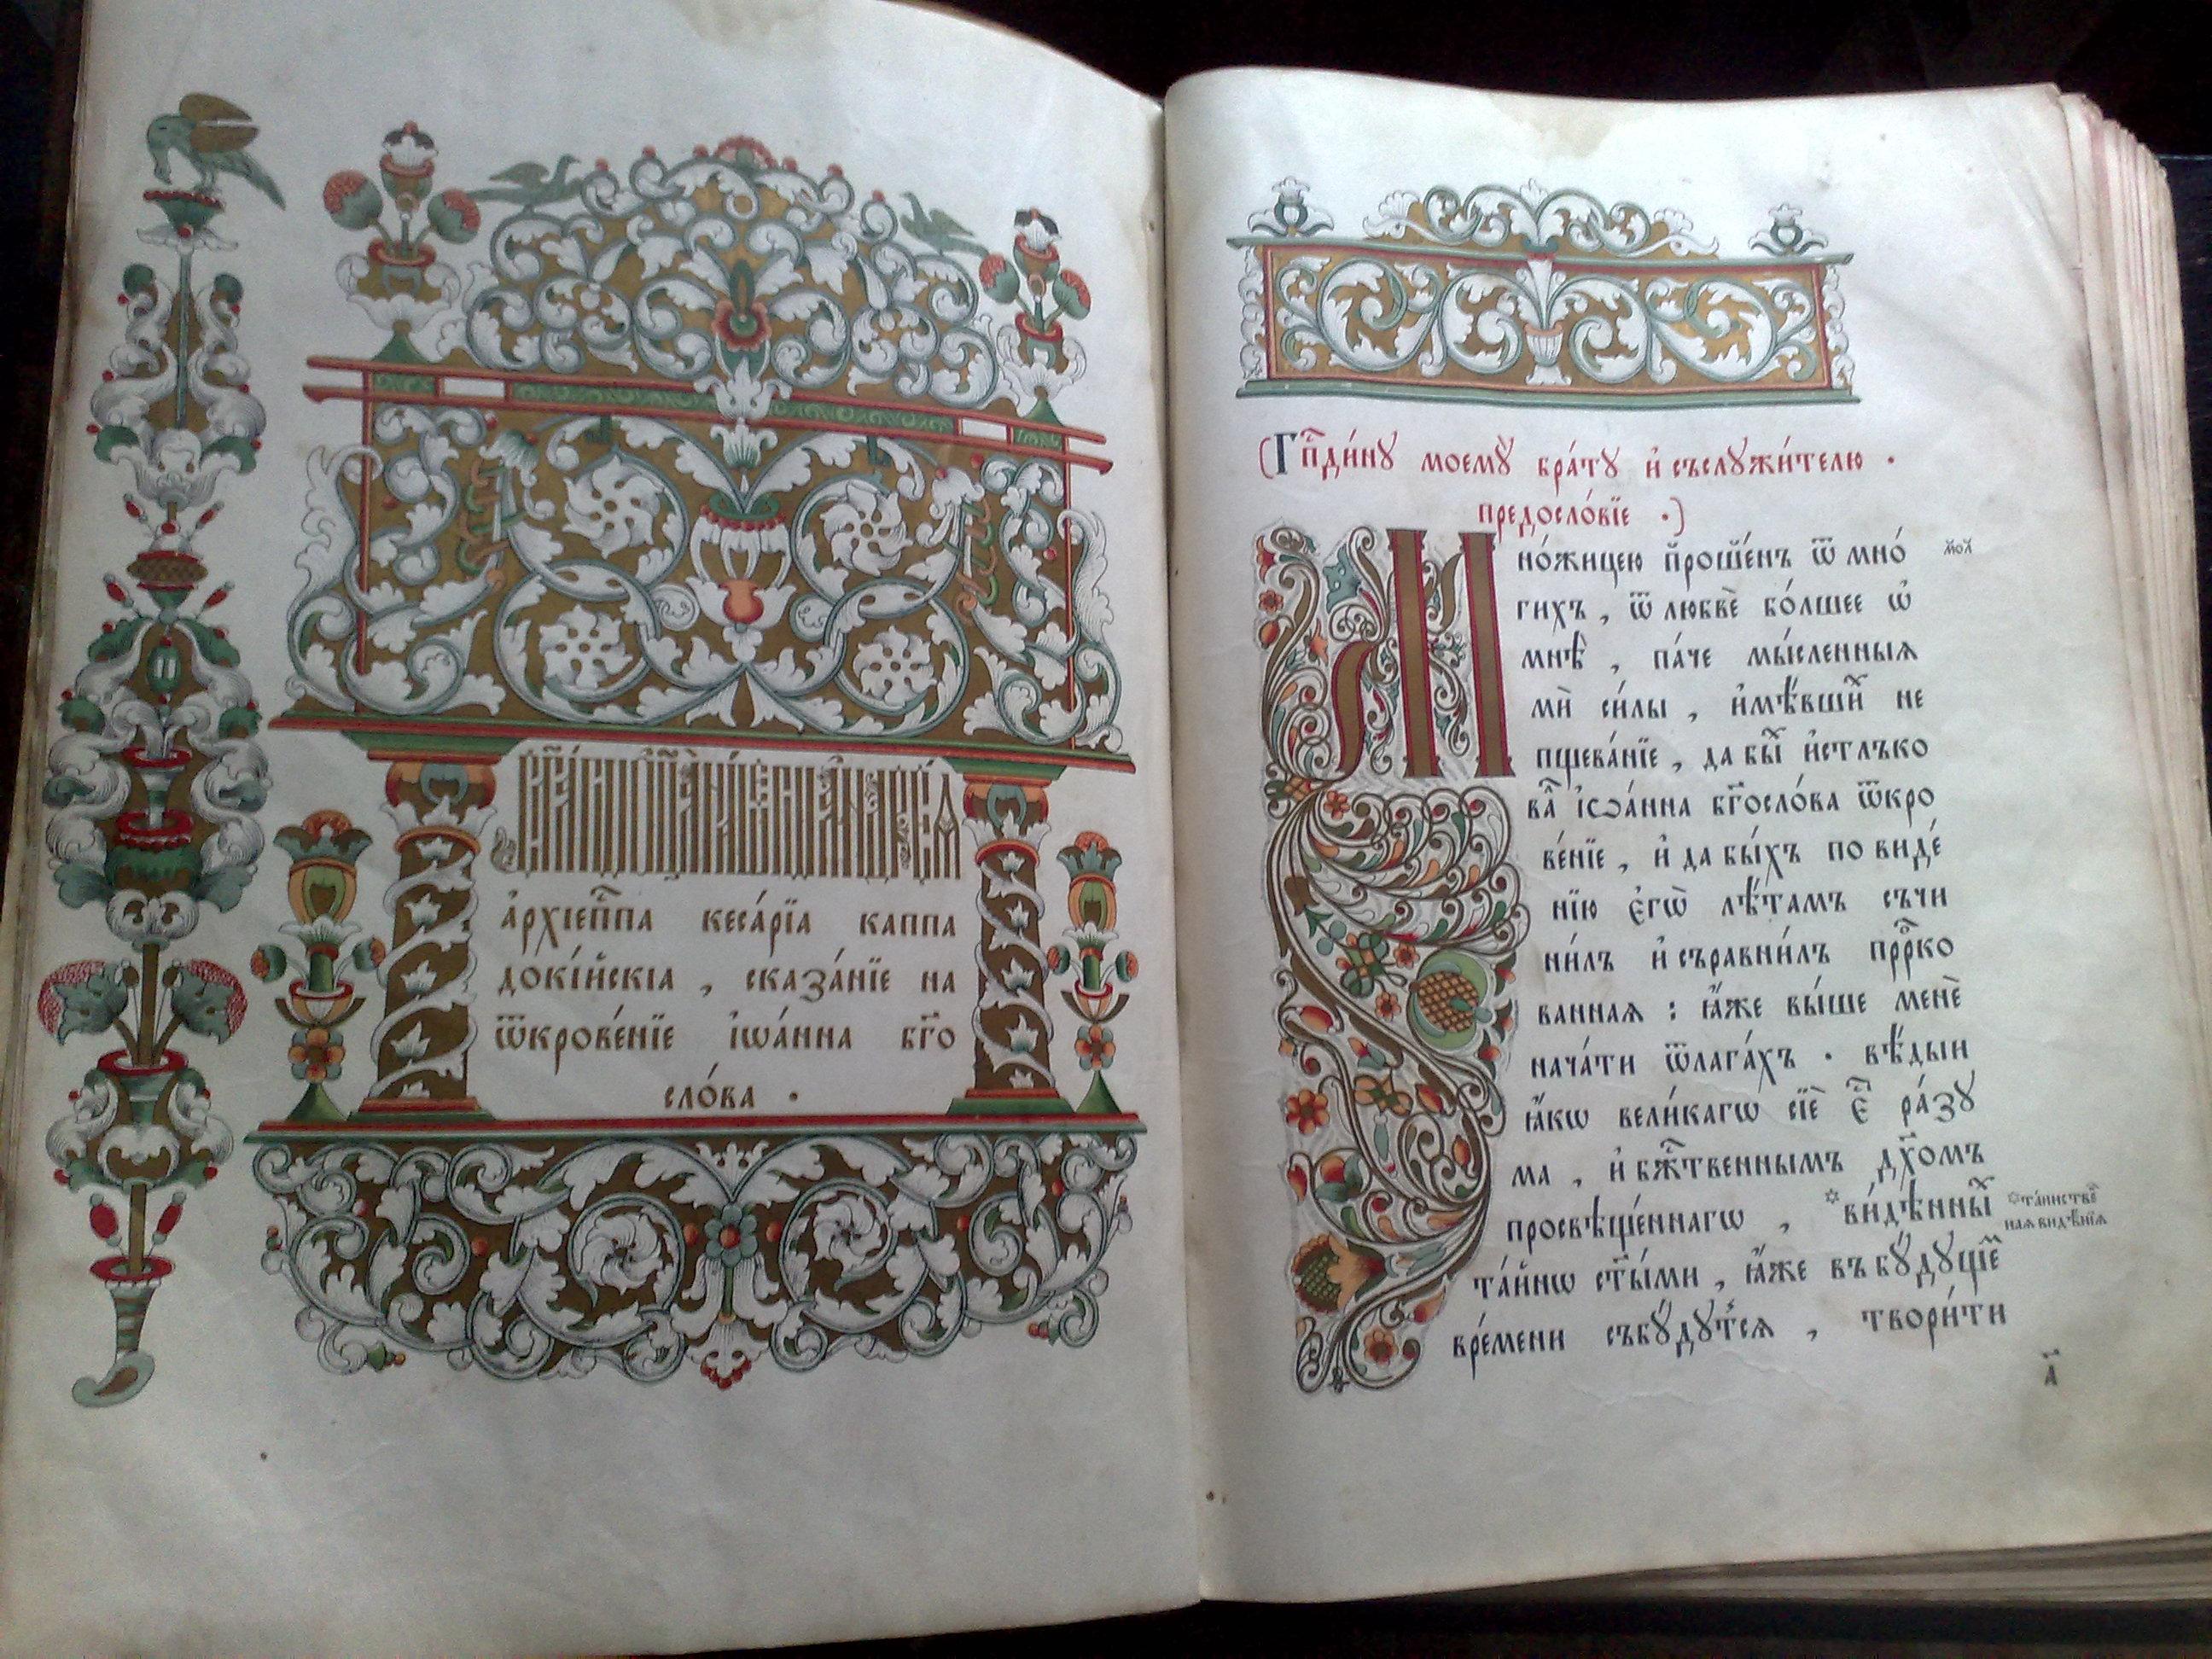 а҆рхїепⷭ҇па кеса́рїѧ каппа
докі́йскїѧ , сказа́нїе на
ѿкрове́нїе і҆ѡа́нна бг҃о
сло́ва .
(Гпⷭ҇ди́нꙋ моемꙋ̀ бра́тꙋ и҆ съслꙋжи́телю .
предосло́вїе .)
Мно́жицею проше́нъ ѿ мно́
гихъ , ѿ любвѐ бо́лшее ѡ҆
мнѣ̀ , па́че мы́сленныѧ
мѝ си́лы , и҆мѣ́вшїй не
пщева́нїе , да бы́х и҆стлъко
ва́л і҆ѡа́нна бг҃осло́ва ѿкро
ве́нїе , и҆ да бы́хъ по видѣ́
нїю є҆гѡ̀ лѣ́тамъ съчи
ни́лъ и҆ съравни́лъ прⷪ҇рко
ваннаѧ : ꙗ҆́же вы́ше менѐ
нача́ти ѿлага́хъ . вѣ́дый
ꙗ҆́кѡ вели́кагѡ сїѐ є҆́сть ра́зꙋ
ма , и҆ бжⷭ҇твеннымъ дх҃омъ
просвѣще́ннагѡ , *ви́дѣнных
та́йнѡ ст҃ы́ми , ꙗ҆́же въ бꙋ́дꙋщїе
*та́инстве
наѧ видѣ́нїѧ
вре́мени събꙋ́дꙋтсѧ , твори́ти
а҃